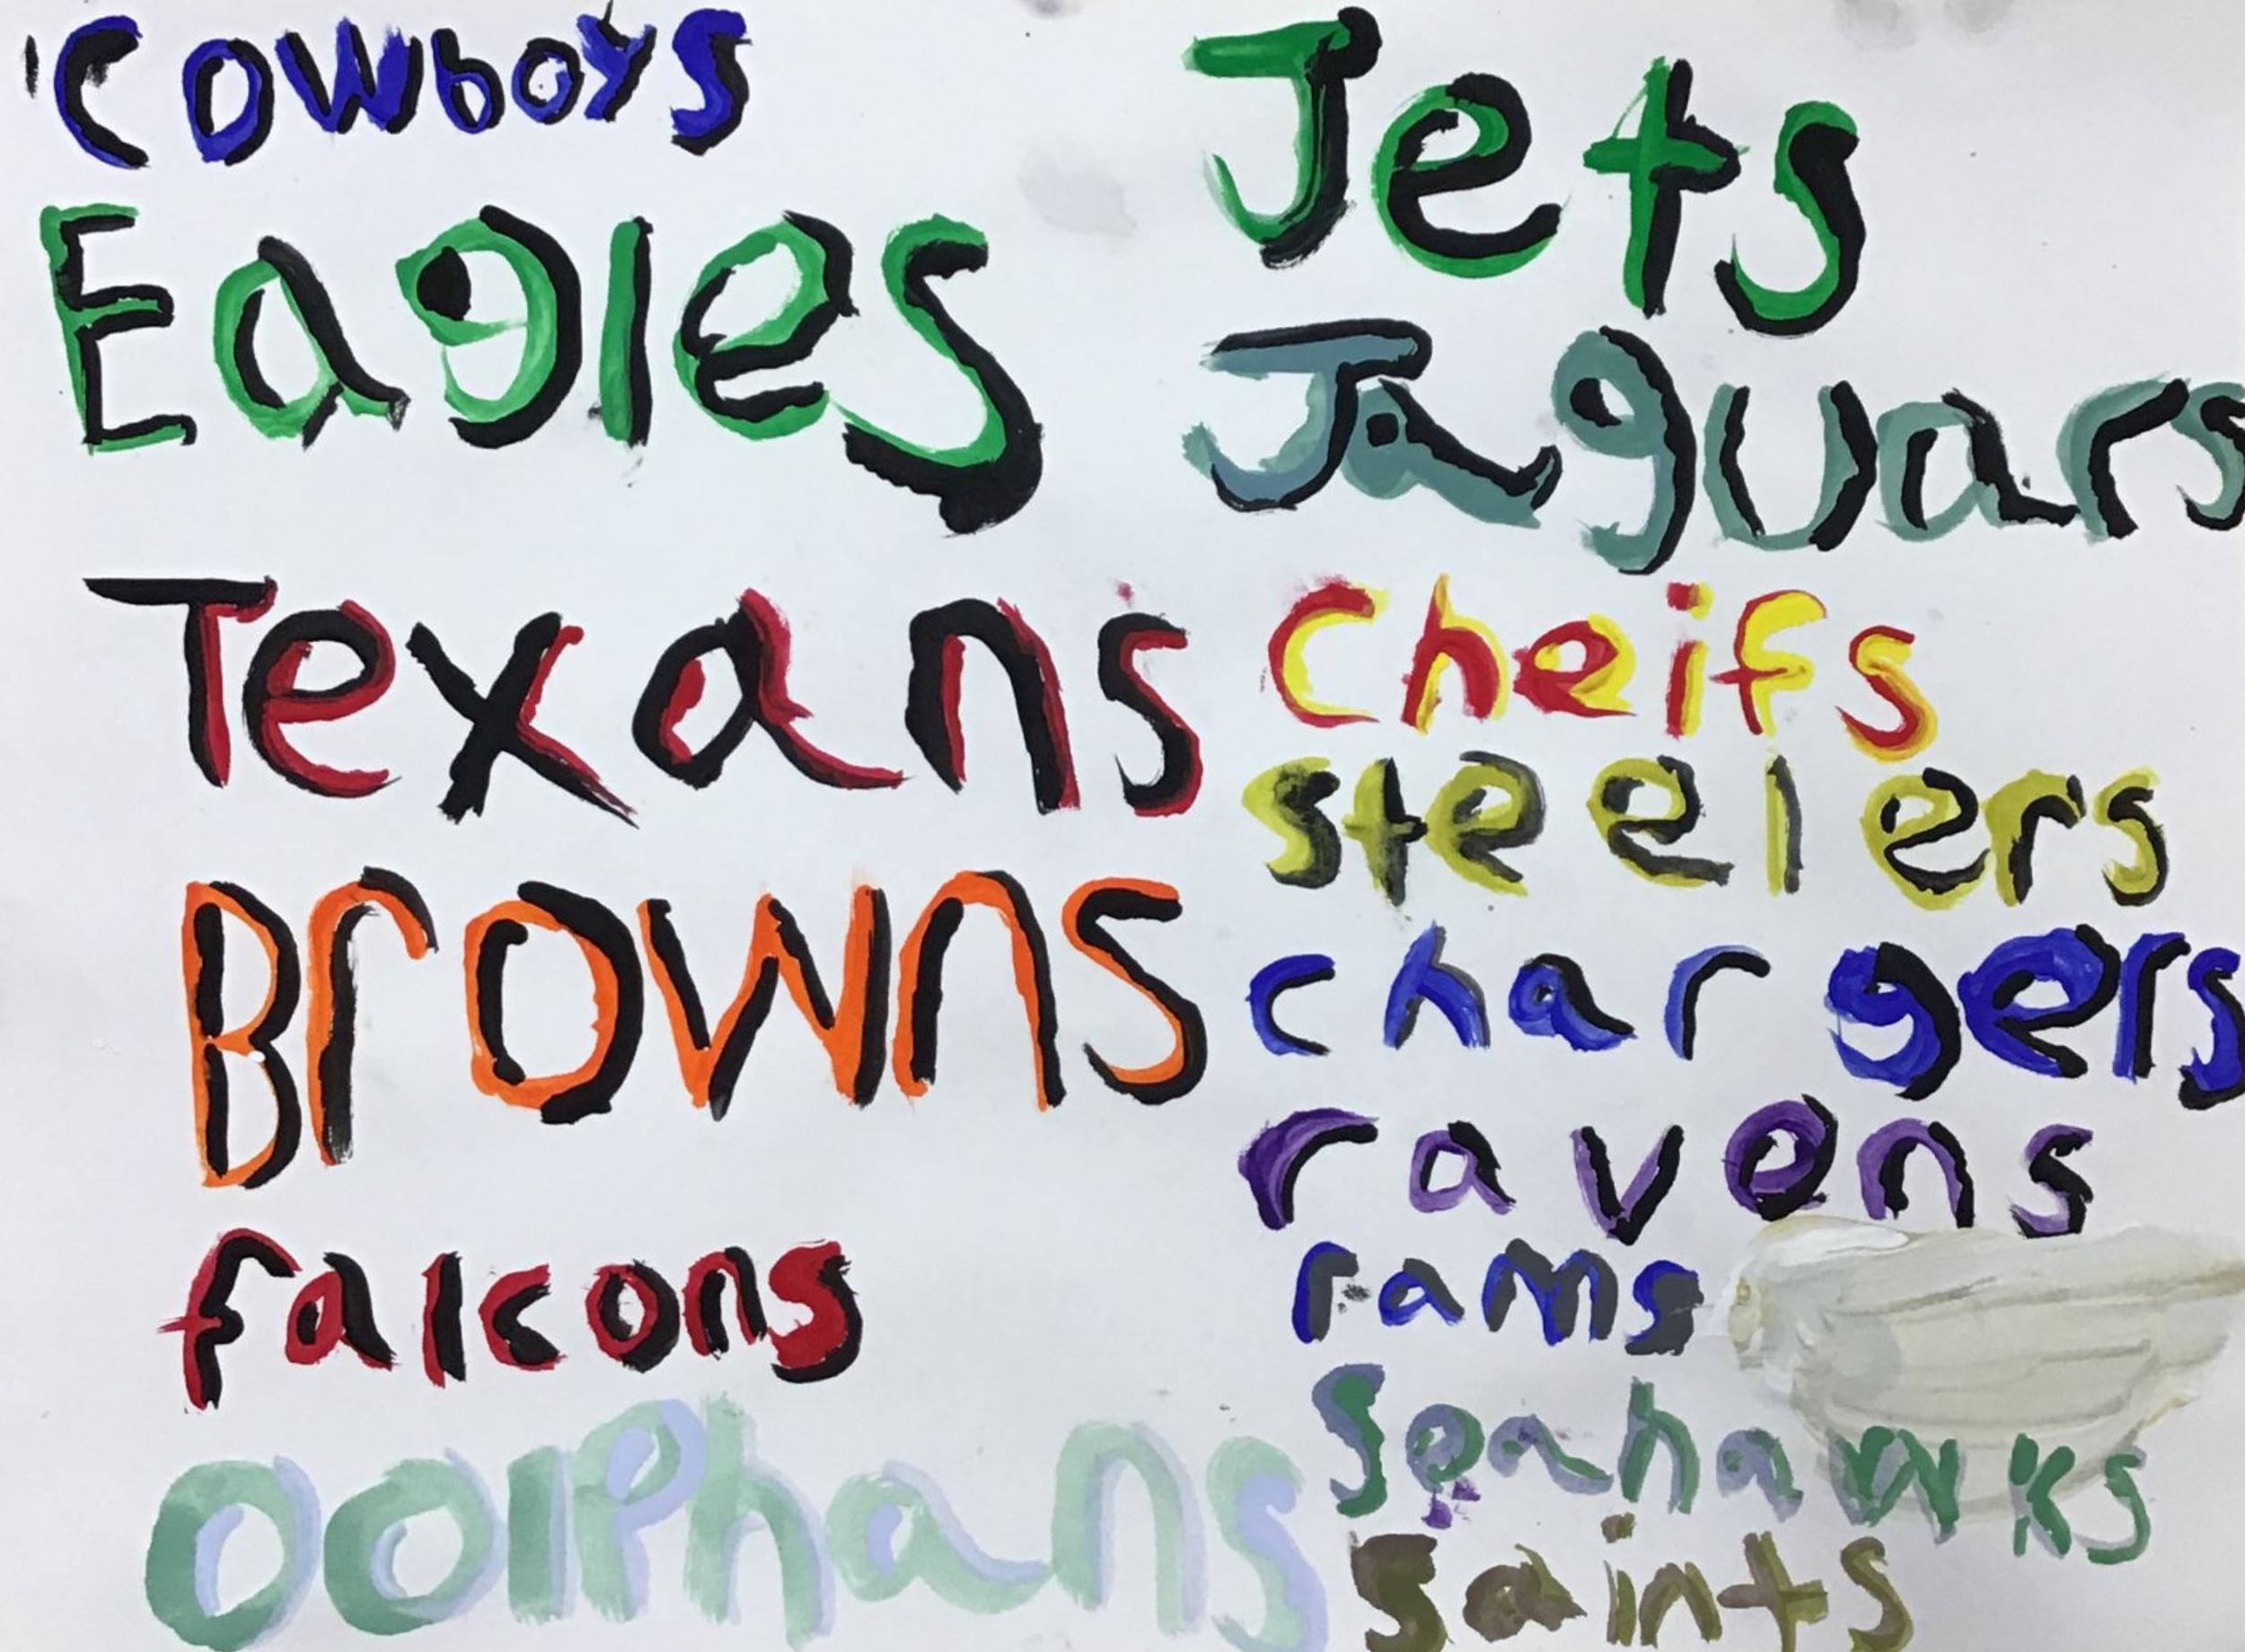 Cowboys
Eagles
Texans
Browns
falcons
Dolphans
Jets
Jaguars
Cheifs
steelers
chargers
ravens
rams
Seahawks
Saints